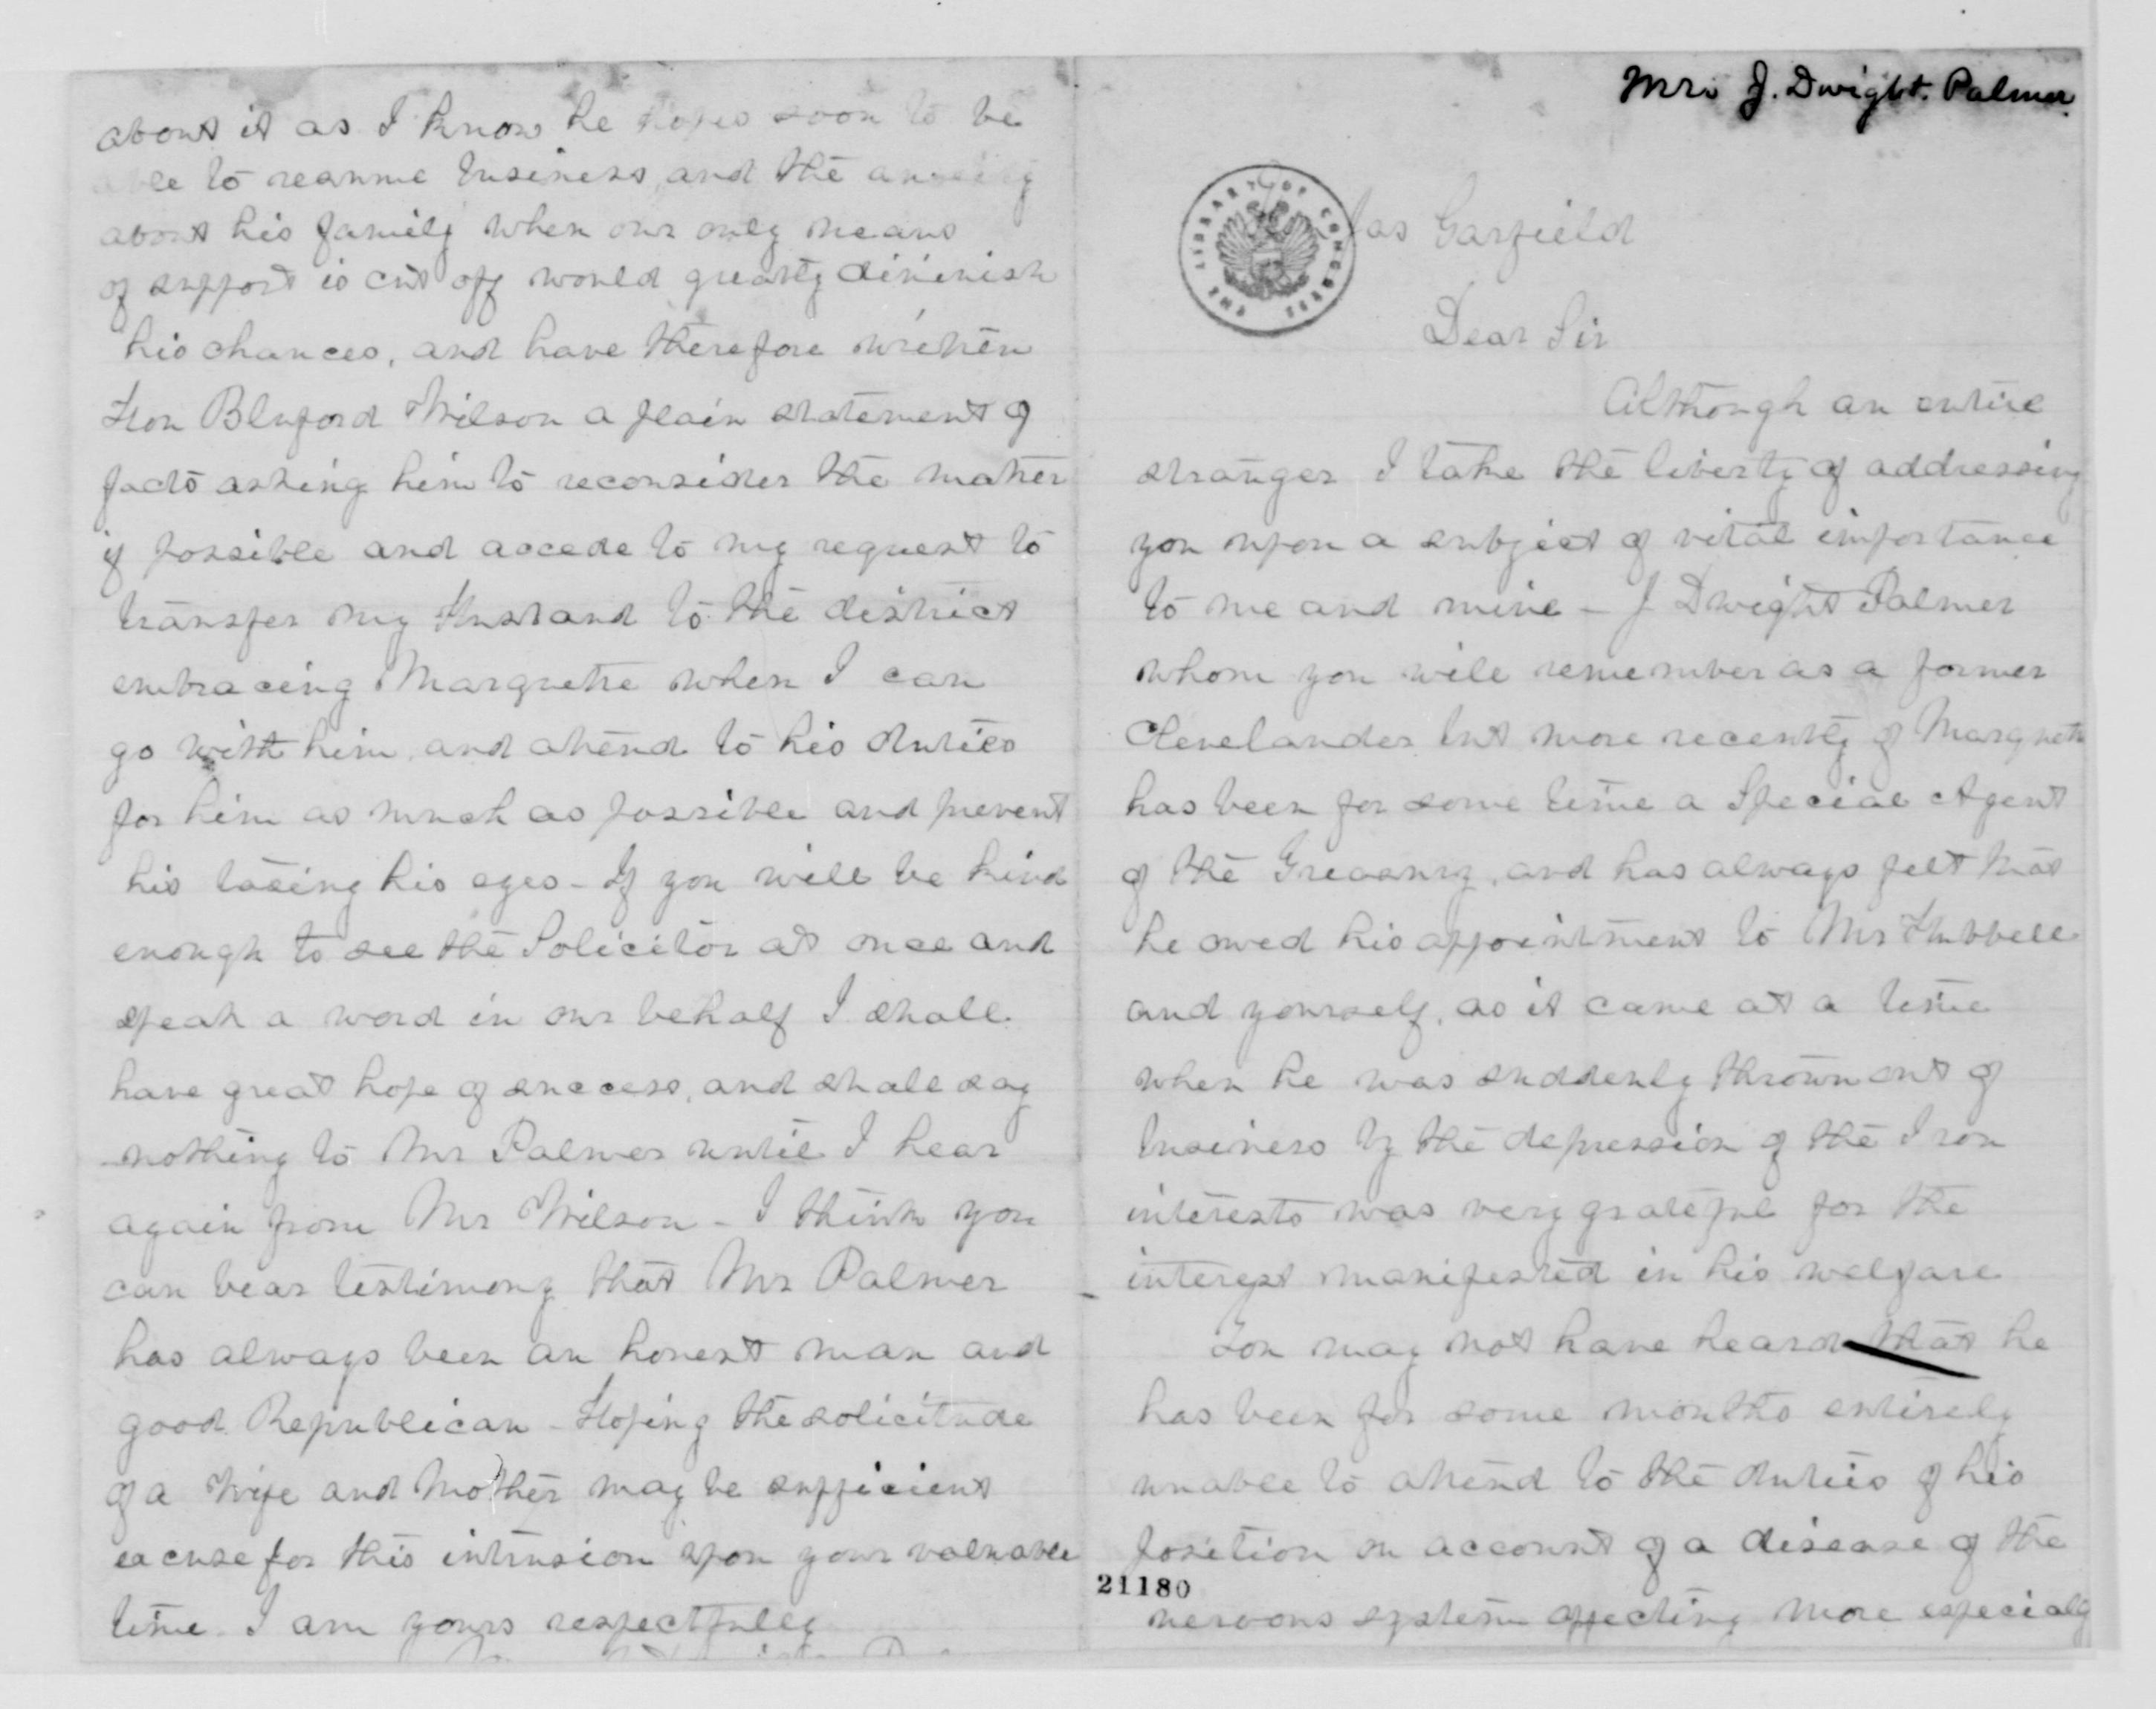 Mrs J. Dwight. Palmer.
THE LIBRARY OF CONGRESS
Jas Garfield
Dear Sir
Although an entire
stranger I take the liberty of addressing
you upon a subject of vital importance
to me and mine - J Dwight Palmer
whom you will remember as a former
Clevelander but more recently of Marquette
has been for some time a Special Agent
of the Treasury, and has always felt that
he owed his appointment to Mr Hubbell
and yourself, as it came at a time
when he was suddenly thrown out of
business by the depression of the Iron
interests was very grateful for the
interest manifested in his welfare
You may not have heard that he
has been for some months entirely
unable to attend to the duties of his
position on account of a disease of the
21180
nervous system affecting more especially
about it as I know he hopes soon to be
able to resume business, and the anxiety
about his family when our only means
of support is cut off would greatly diminish
his chances, and have therefore written
Hon Bluford Wilson a plain statement of
facts asking him to reconsider the matter
if possible and accede to my request to
transfer my Husband to the district
embracing Marquette when I can
go with him, and attend to his duties
for him as much as possible and prevent
his losing his eyes - If you will be kind
enough to see the Solicitor at once and
speak a word in our behalf I shall
have great hope of success, and shall say
nothing to Mr Palmer until I hear
again from Mr Wilson - I think you
can bear testimony that Mr Palmer
has always been an honest man and
good Republican - Hoping the solicitude
of a Wife and Mother may be sufficient
excuse for this intrusion upon your valuable
time I am yours respectfully